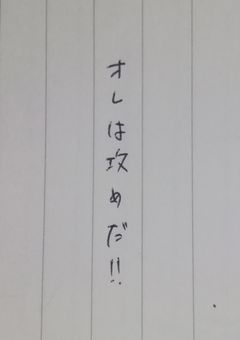 オレは攻めだ!!